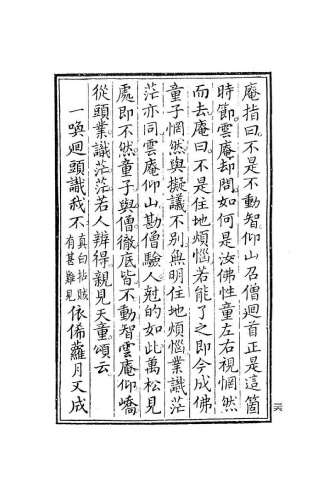 庵指曰不是不動智仰山召僧迴首正是這箇
時節雲庵却問如何是汝佛性童左右視惘然
而去庵曰不是住地煩惱若能了之即今成佛
童子惘然與擬議不別無明住地煩惱業識茫
茫亦同雲庵仰山勘僧驗人尅的如此萬松見
處即不然童子與僧徹底皆不動智雲庵仰嶠
從頭業識茫茫若人辨得親見天童頌云
一喚迴頭識我不真白拈賊有甚難見依俙蘿月又成